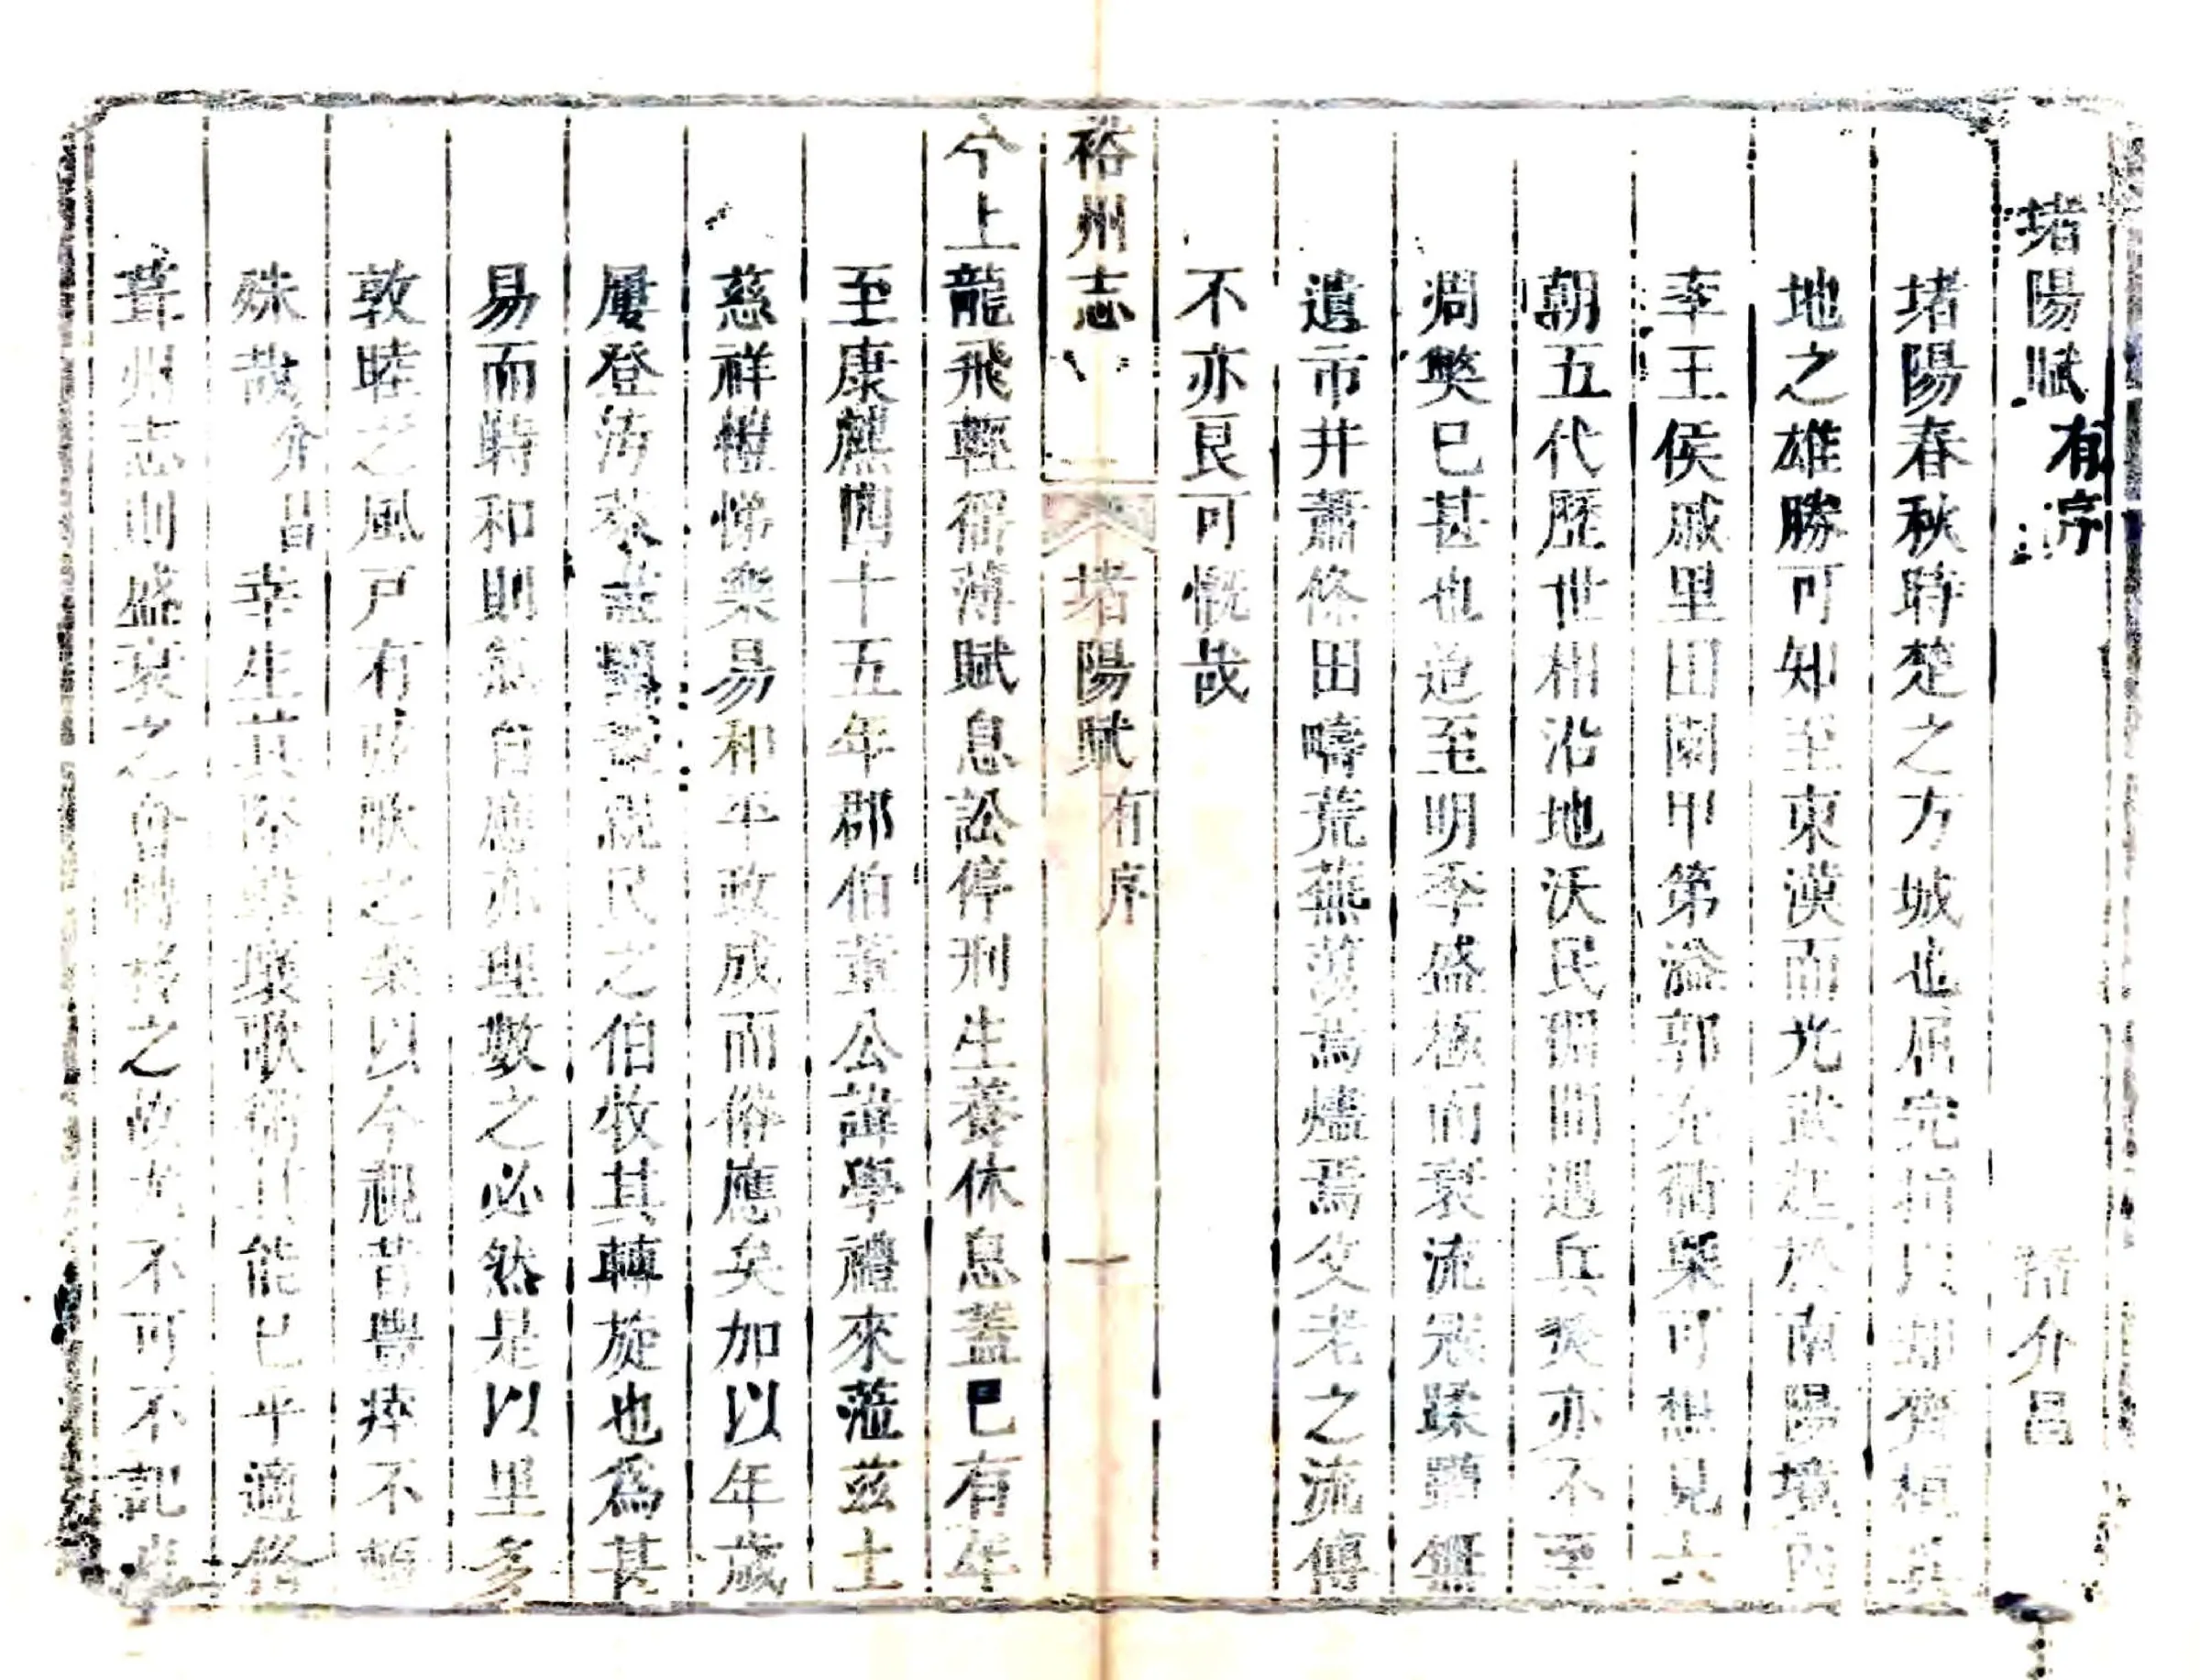 堵陽賦有序 介昌
堵陽春秋時楚之方城也屈完指以却齊桓
地之雄勝可知至東漢而光武起於南陽境
李王侯戚里田園甲第溢郭充衢槩可想見六
朝五代歷世相沿地沃民間遇兵燹亦不至
凋獘已甚也迨至明季盛極而衰流冦蹂躪無
遺市井蕭條田疇荒蕪焉燼焉父老之流傳
不亦艮可慨哉
裕州志 堵陽賦有序 一
今上龍飛輕徭薄賦息訟停刑生養休息蓋已有年
至康熙四十五年郡伯董公諱學禮來蒞茲土
慈祥愷悌樂易和平政成而俗應矣加以年歲
屢登親民之伯牧其轉旋也為甚
易而時和則氣自應亦理數之必然是以里多
敦睦之風戸有歌之樂以今視昔豐瘁不
殊哉介昌幸生其歌能已乎適脩
葺州志則盛衰之不可不記